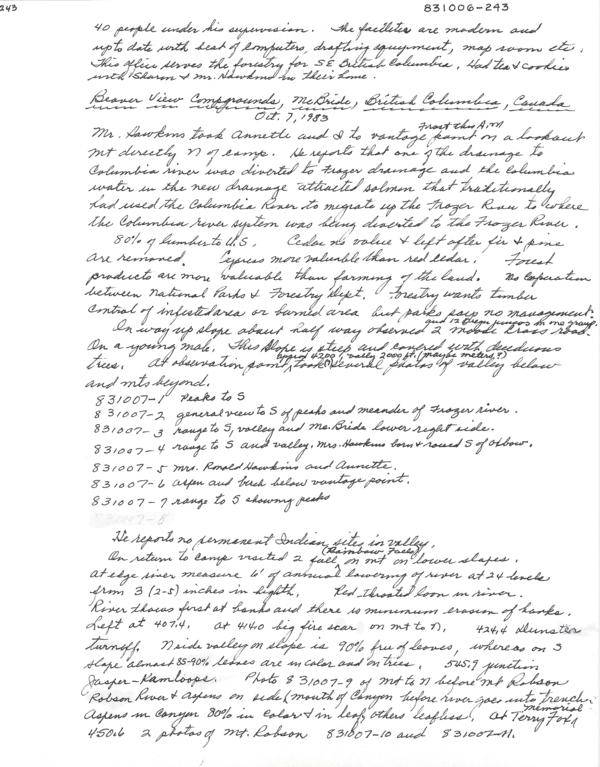 243
831006-243
40 people under his supervision. The facilities are modern and
up to date with seat of computers, drafting equipment, map room etc.
This office serves the forestry for SE British Columbia. Had tea & cookies
with Sharon & Mr. Hawkins in their home.
Beaver View Compgrounds, McBride, British Columbia, Canada
Oct. 7, 1983
Frost this A.M
Mr. Hawkins took Annette and I to vantage point on a lookout
mt directly N of camp. He reports that one of the drainage to
Columbia river was diverted to Frazer drainage and the Columbia
water in the new drainage attracted salmon that traditionally
had used the Columbia River to migrate up the Frozer River to where
the Columbia river system was being diverted to the Frozer River.
80% of lumber to U.S. Cedar no value & left after fir & pine
are removed. Cypress more valuable than red cedar. Forest
products are more valuable than farming of the land. No Coperation
between National Parks & Forestry Dept. Forestry wants timber
control of infested area or burned area but parks says no management.
and 12 in one group.
In way up slope about half way observed 2 road.
On a young male. This slope is steep and covered with deciduous
4200', valley 2000 ft. (maybe meters?)
trees. At observation point, took several photos of valley below
and mts beyond.
831007-1 Peaks to S
831007-2 general view to S of peaks and meander of Frozer river.
831007-3 range to S, valley and McBride lower right side.
831007-4 range to S and valley. Mrs. Hawkins born & raised S of Oxbow.
831007-5 Mrs. Ronald Hawkins and Annette.
831007-6 aspen and birch below vantage point.
831007-7 range to S showing peaks
831007-8
He reports no permanent Indian sites in valley.
(Rainbow Falls)
On return to camp visited 2 fall on mt on lower slopes.
At edge river measure 6' of annual lowering of river at 24 levels
from 3 (2-5) inches in heighth. Red throated loon in river.
River thaws first at banks and there is minimum erosion of banks.
Left at 407.4. at 414.0 big fire scar on mt to N. 424.4 Dunster
turnoff. N side valley on slope is 90% free of leaves, whereas on S
slope almost 85-90% leaves are in color and on trees. 545.9 junction
Jasper-Kamloops. Photo 831007-9 of mt to N before Mt Robson
Robson River & Aspens on side (mouth of Canyon before river goes into trench.
Memorial
Aspens in Canyon 80% in color & in leaf, others leafless. At Terry Fox
450.6 2 photos of Mt. Robson 831007-10 and 831007-11.